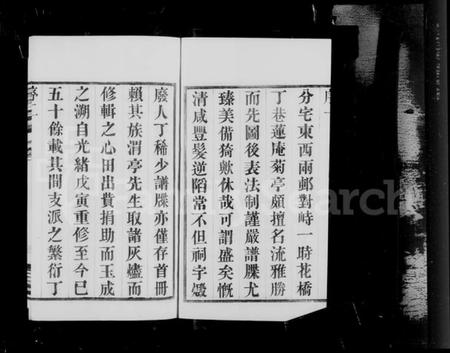 序一
分宅東西兩邨對峙一時花橋
丁巷蓮庵菊亭頗擅名流雅勝
而先圖後表法制謹嚴譜牒尤
臻美備猗歟休哉可謂盛矣慨
清咸豐髮逆蹈常不但祠宇燬
廢人丁稀少譜牒亦僅存首冊
賴其族渭亭先生取諸灰燼而
修輯之心田出費捐助而玉成
之溯自光緒戊寅重修至今已
五十餘載其間支派之繁衍丁